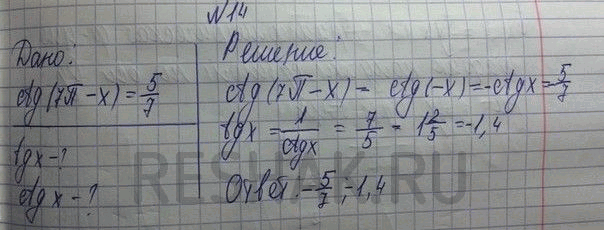 №14
Дано:
ctg(7π-x)=5/7
tgx-?
ctgx-?
Решение:
ctg(7π-x)=ctg(-x)=-ctgx=5/7
tgx=1/ctgx=7/5=1 2/5=-1,4
Ответ: -5/7; -1,4
RESHAK.RU